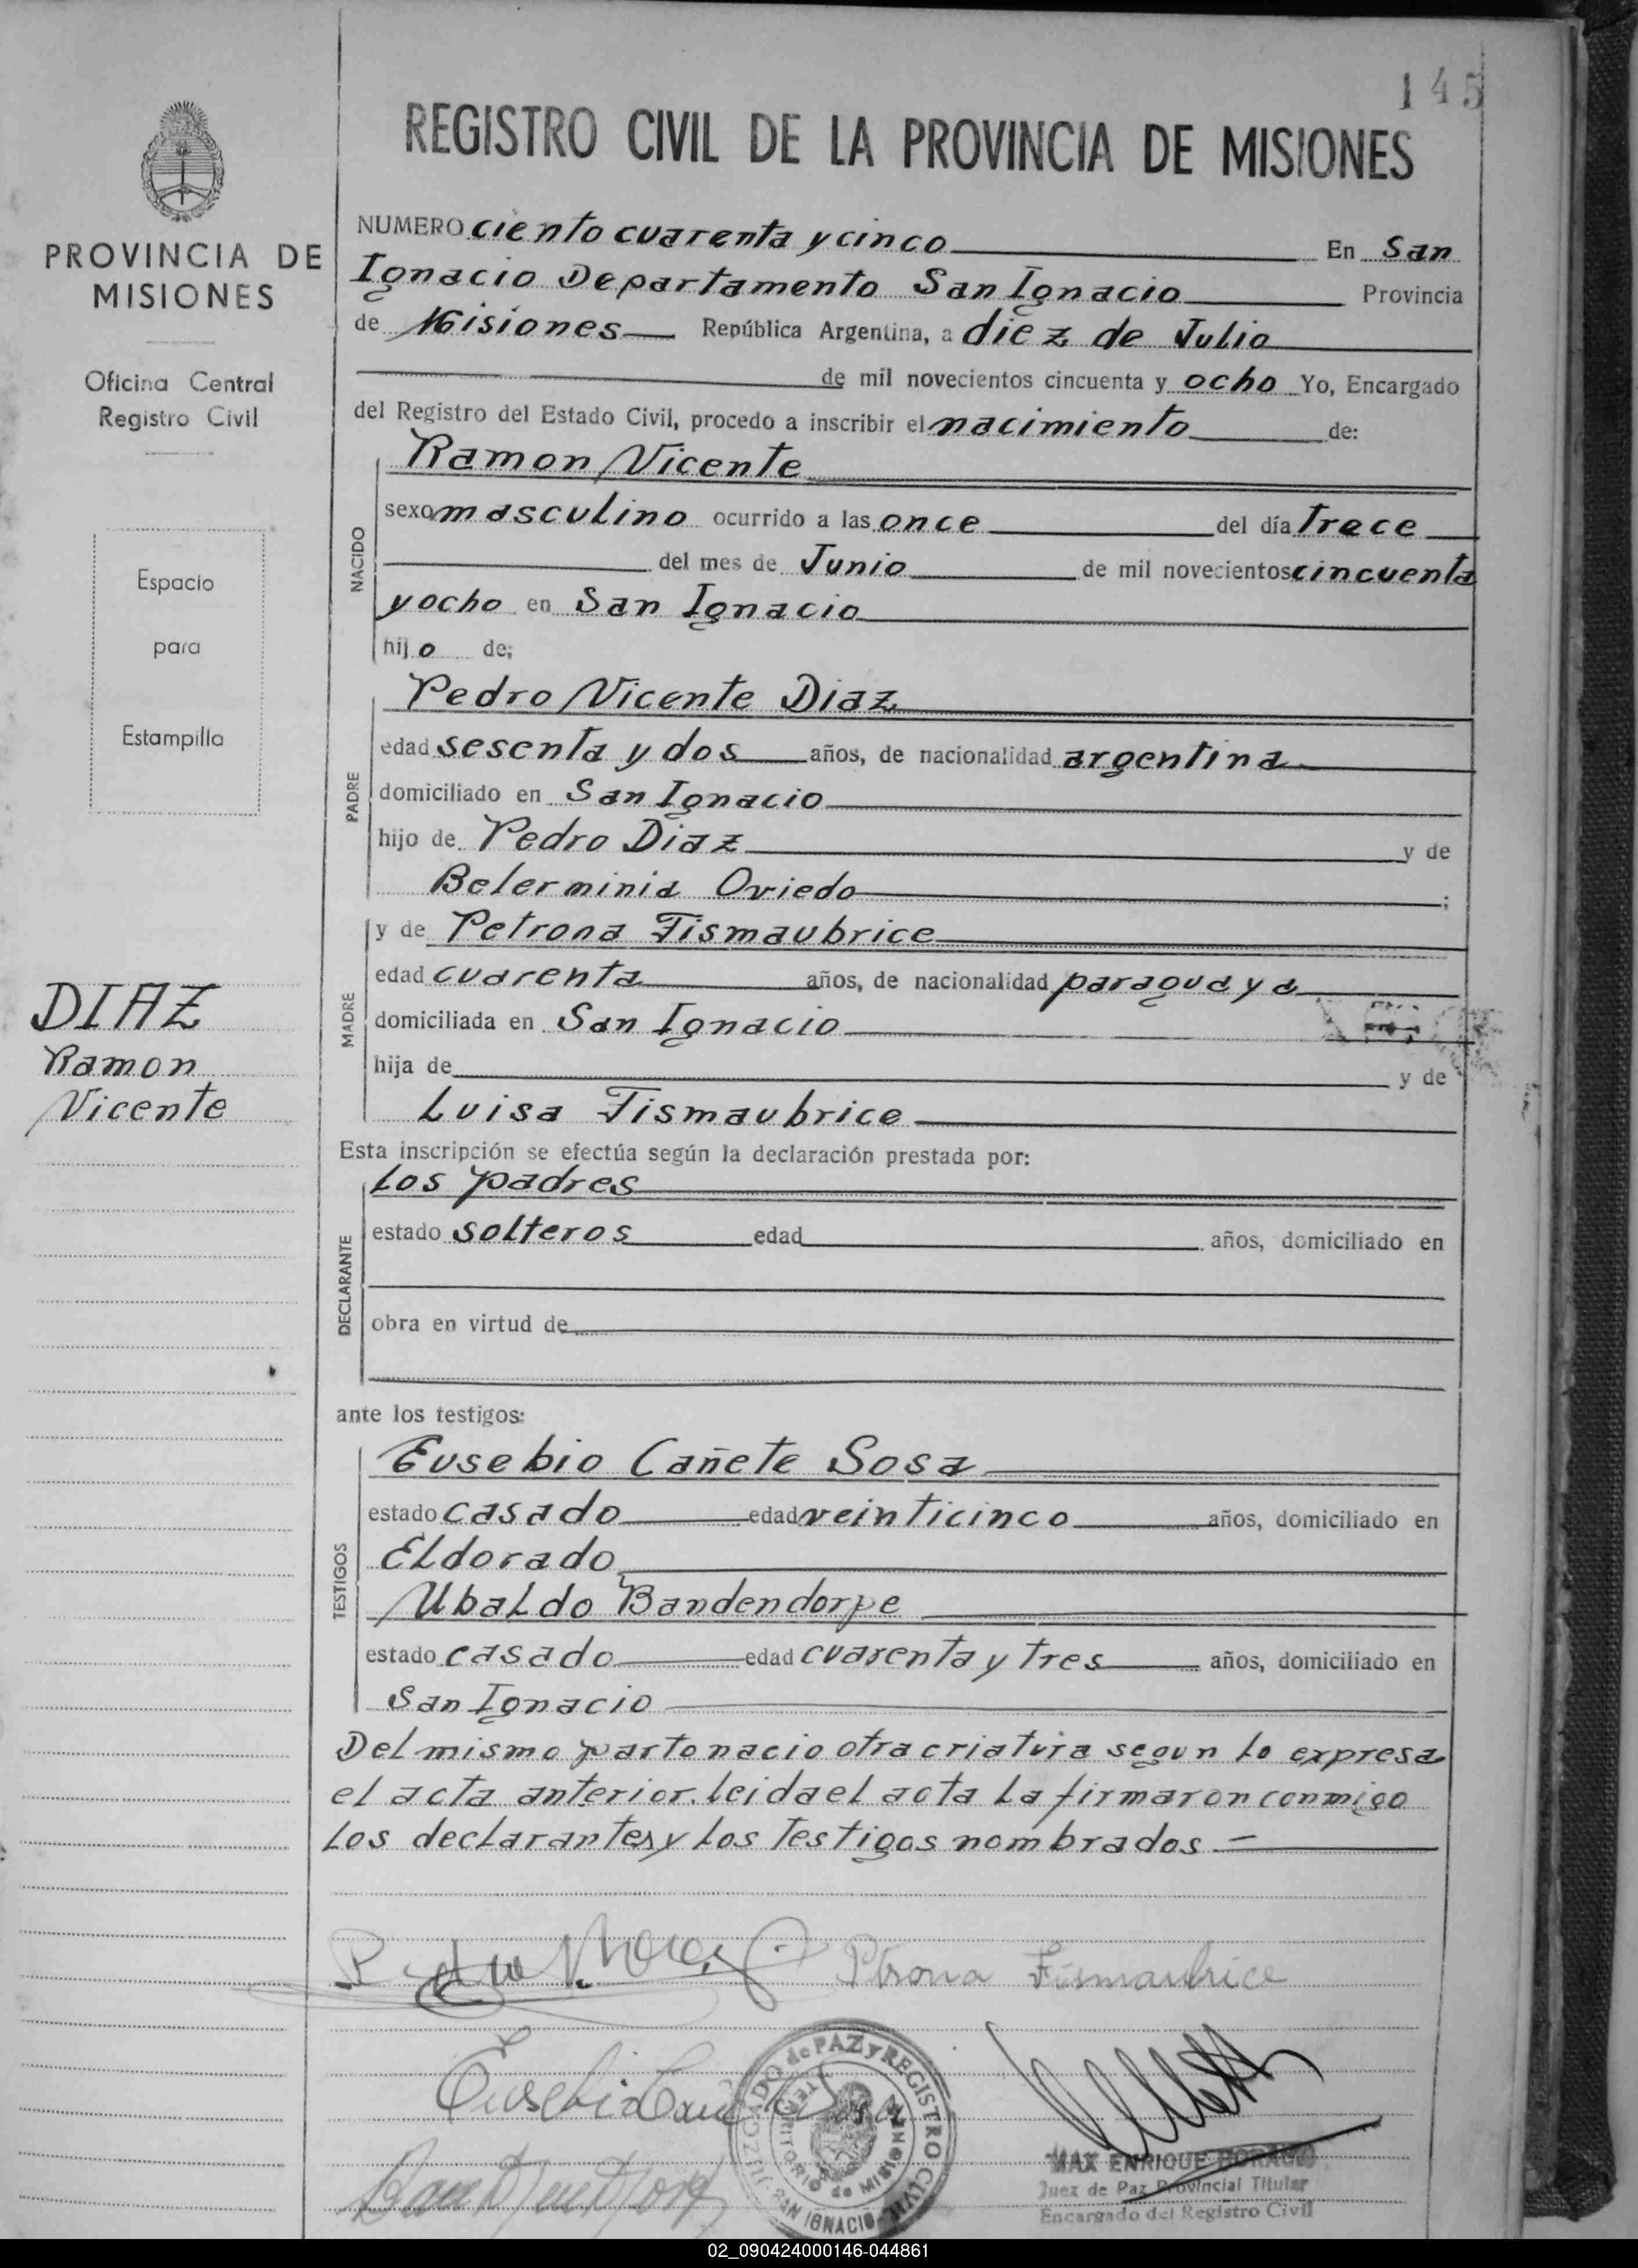 145
REGISTRO CIVIL DE LA PROVINCIA DE MISIONES
PROVINCIA DE
MISIONES
Oficina Central
Registro Civil
Espacio
para
Estampilla
DIAZ
Ramon
Vicente
NUMERO ciento cuarenta y cinco En San
Ignacio Departamento San Ignacio Provincia
de Misiones República Argentina, a diez de Julio
de mil novecientos cincuenta y ocho Yo, Encargado
del Registro del Estado Civil, procedo a inscribir el nacimiento de:
NACIDO
Ramon Vicente
sexo masculino ocurrido a las once del día trece
del mes de Junio de mil novecientos cincuenta
y ocho en San Ignacio
hijo de;
PADRE
Pedro Vicente Diaz
edad sesenta y dos años, de nacionalidad argentina
domiciliado en San Ignacio
hijo de Pedro Diaz y de
Belerminia Oviedo ;
MADRE
y de Petrona Fismaubrice
edad cuarenta años, de nacionalidad paraguaya
domiciliada en San Ignacio
hija de y de
Luisa Fismaubrice
Esta inscripción se efectúa según la declaración prestada por:
DECLARANTE
Los padres
estado solteros edad años, domiciliado en
obra en virtud de
ante los testigos:
TESTIGOS
Eusebio Cañete Sosa
estado casado edad veinticinco años, domiciliado en
Eldorado
Ubaldo Bandendorpe
estado casado edad cuarenta y tres años, domiciliado en
San Ignacio
Del mismo parto nacio otra criatura segun lo expresa
el acta anterior. leida el acta la firmaron conmigo
los declarantes y los testigos nombrados.—
Ptrona Fismaubrice
JUZGADO de PAZ y REGISTRO CIVIL
TERRITORIO de MISIONES
SAN IGNACIO
MAX ENRIQUE
Juez de Paz Provincial Titular
Encargado del Registro Civil
02_090424000146-044861